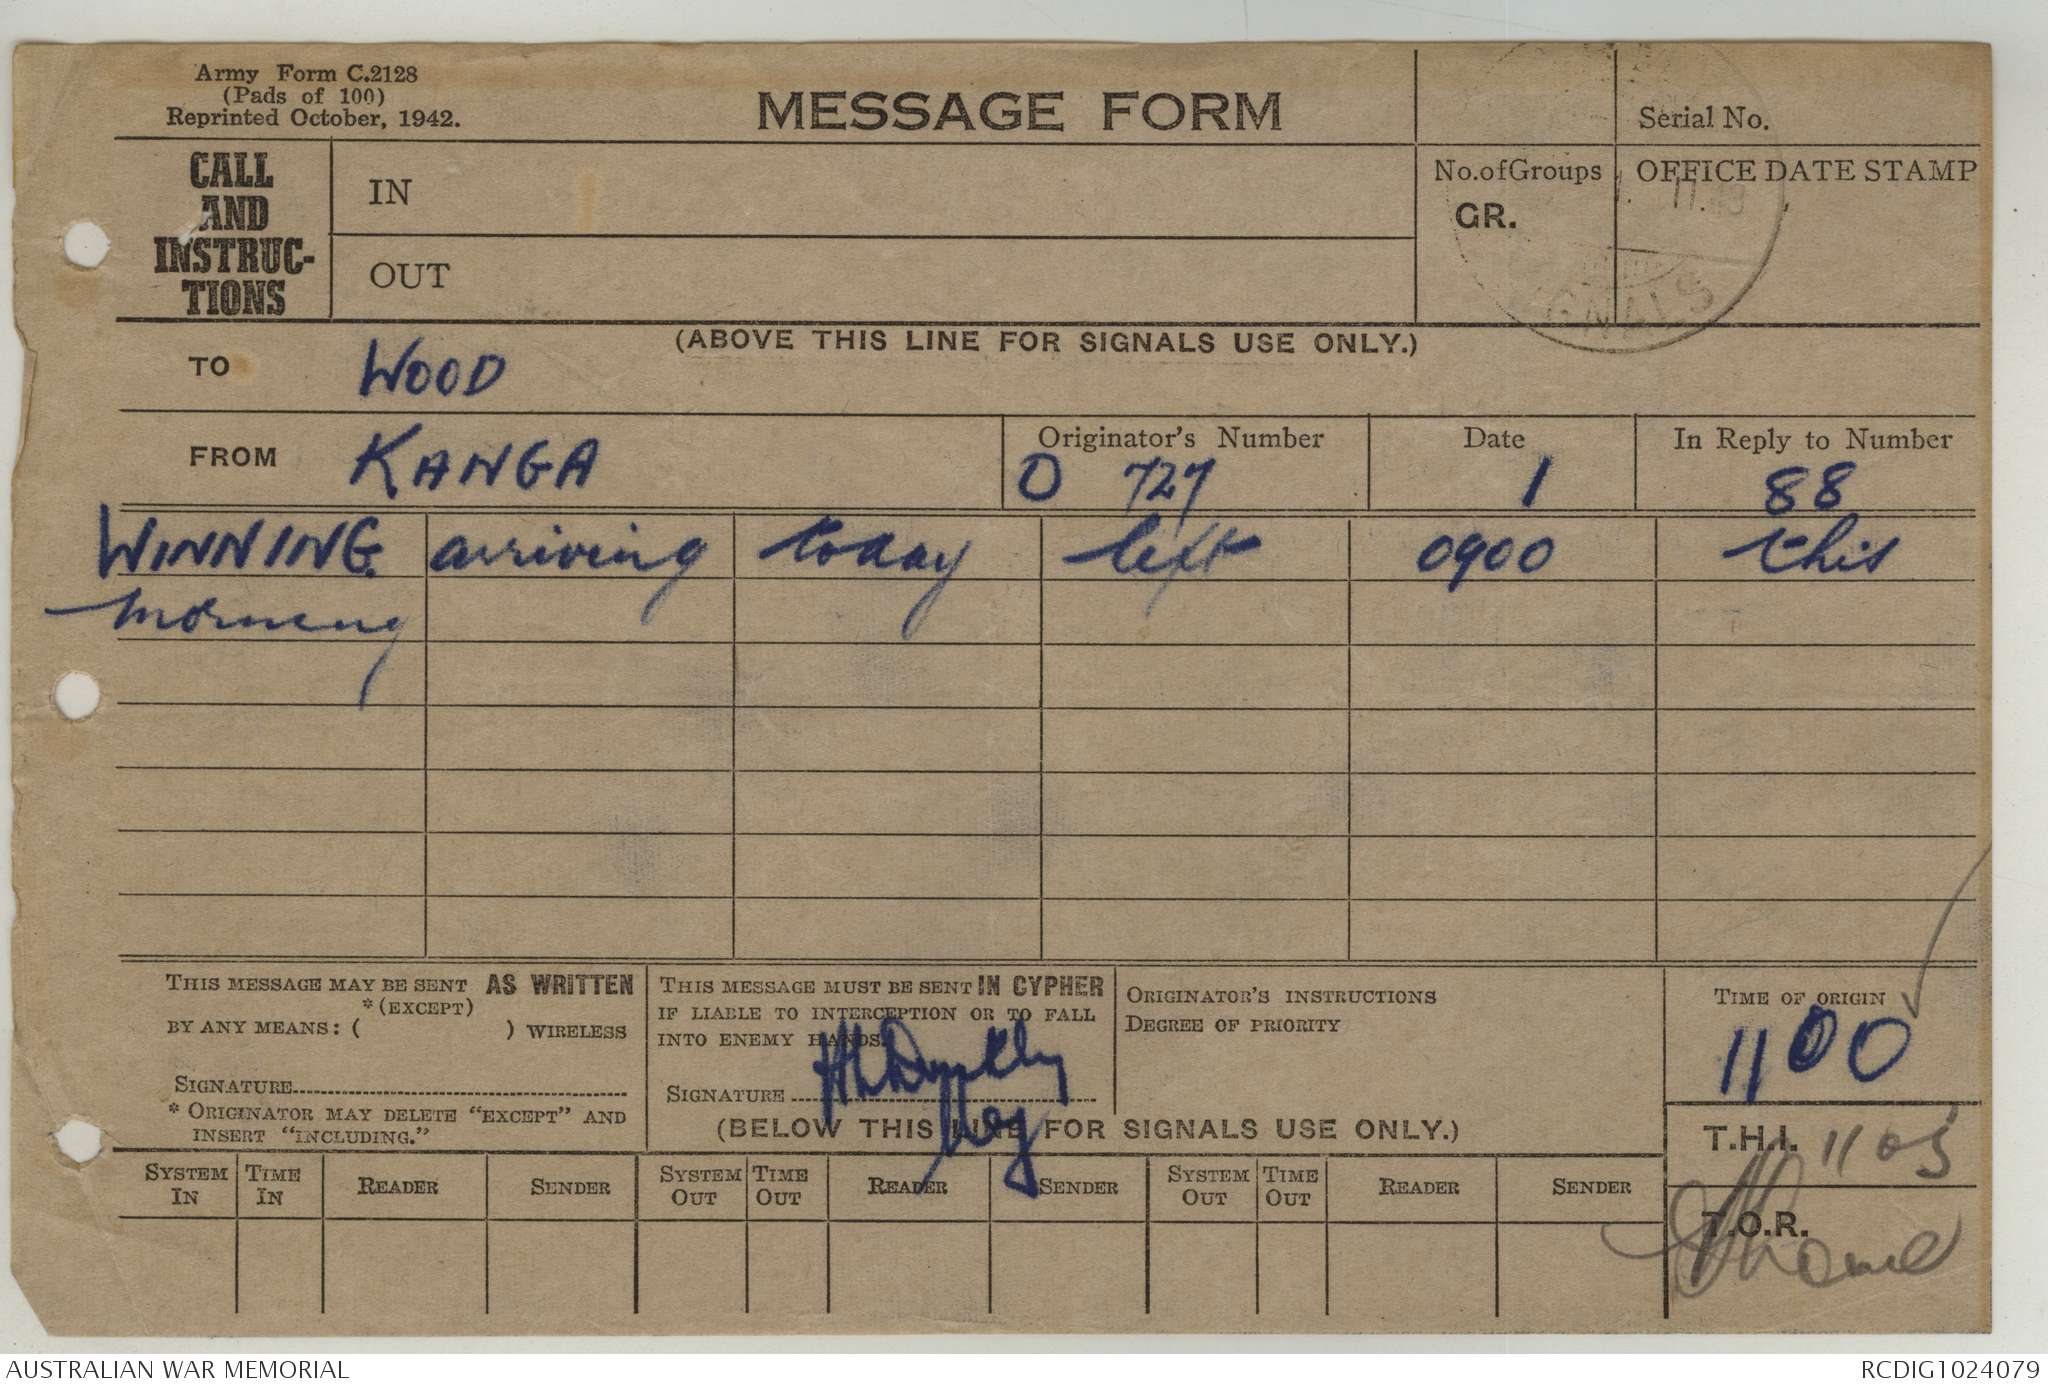 Army Form C.2128
(Pads of 100)
Reprinted October, 1942.
MESSAGE FORM
Serial No.
CALL
AND
INSTRUC-
TIONS
IN
OUT
No. of Groups
GR.
OFFICE DATE STAMP
11.43
SIGNALS
(ABOVE THIS LINE FOR SIGNALS USE ONLY.)
TO WOOD
FROM KANGA
Originator's Number
O 727
Date
1
In Reply to Number
88
WINNING arriving today left 0900 this
morning
THIS MESSAGE MAY BE SENT AS WRITTEN
*(EXCEPT)
BY ANY MEANS: ( ) WIRELESS
SIGNATURE
* ORIGINATOR MAY DELETE "EXCEPT" AND
INSERT "INCLUDING."
THIS MESSAGE MUST BE SENT IN CYPHER
IF LIABLE TO INTERCEPTION OR TO FALL
INTO ENEMY HANDS.
SIGNATURE
ORIGINATOR'S INSTRUCTIONS
DEGREE OF PRIORITY
TIME OF ORIGIN
1100
(BELOW THIS LINE FOR SIGNALS USE ONLY.)
T.H.I. 1105
T.O.R.
SYSTEM IN TIME IN READER SENDER SYSTEM OUT TIME OUT READER SENDER SYSTEM OUT TIME OUT READER SENDER
AUSTRALIAN WAR MEMORIAL
RCDIG1024079